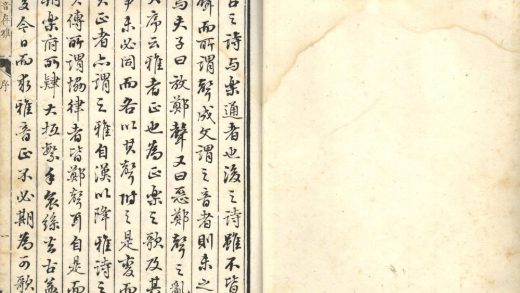 之詩与樂通者也後之詩雖不皆
而所謂聲成文謂之音者則未之
夫子曰放鄭聲又曰惡鄭聲之亂
大序云雅者正也為正樂之歌及其
未必同而各以其聲附之是變而
正者亦謂之雅自漢以降雅詩之
傳所謂協律者皆鄭聲耳自是而
樂府所肆大抵繁手哀絲去古益
今日而求雅音正不必期為可歌
序
一